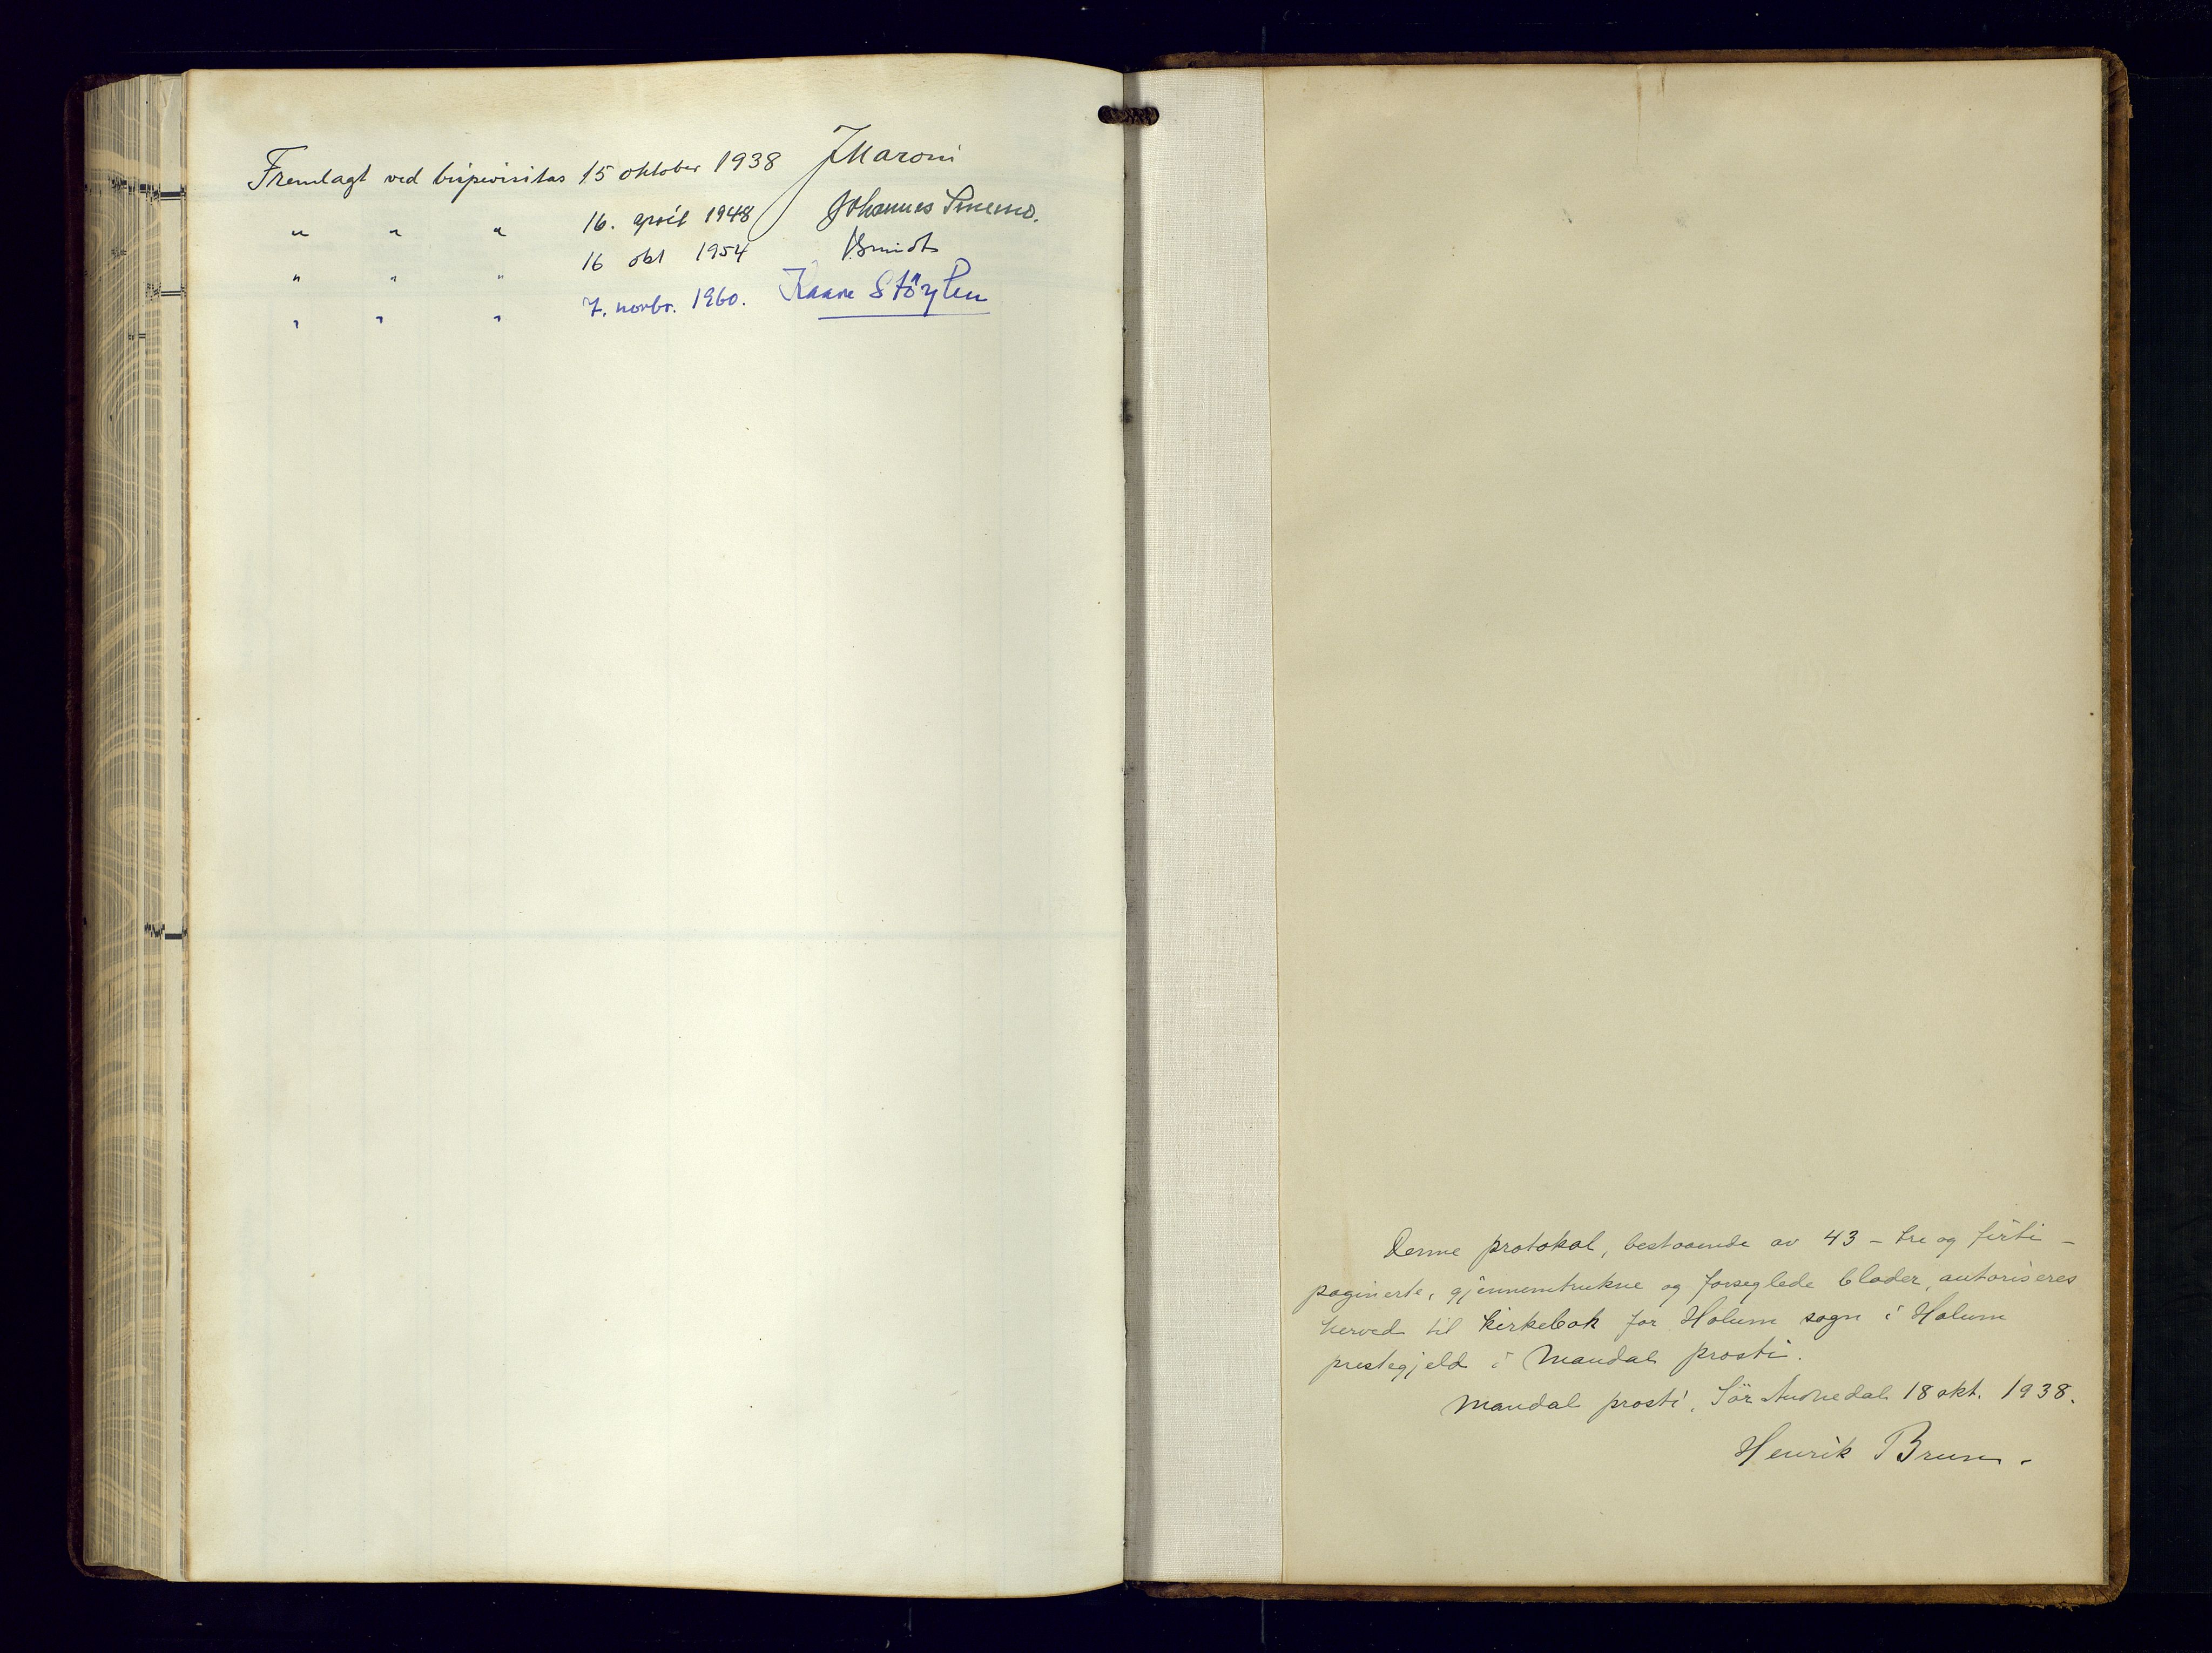 Fremlagt ved bispevisitas 15 oktober 1938 JMaroni
" " " 16. april 1948 Johannes Smemo.
" " " 16 okt 1954 JSmidt
" " " 7. novbr. 1960. Kaare Stöylen
Denne protokol, bestaaende av 43 – tre og firti –
paginerte, gjennemtrukne og forseglede blader, autoriseres
herved til kirkebok for Holum sogn i Holum
prestegjeld i Mandal prosti.
Mandal prosti, Sör Audnedal 18 okt. 1938.
Henrik Brun.